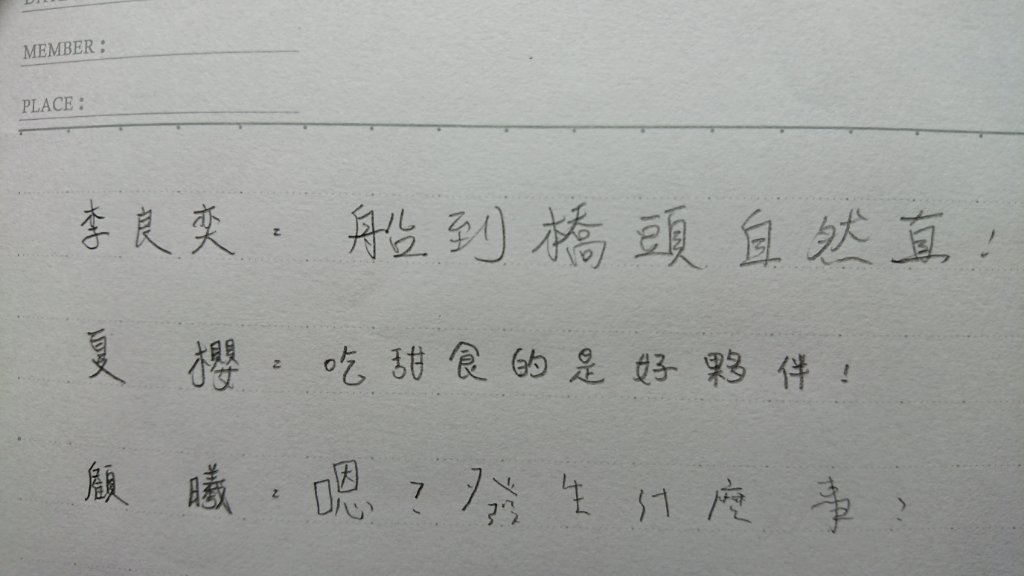 MEMBER:
PLACE:
李良奕：船到橋頭自然直！
夏櫻：吃甜食的是好夥伴！
顧曦：嗯？發生什麼事？